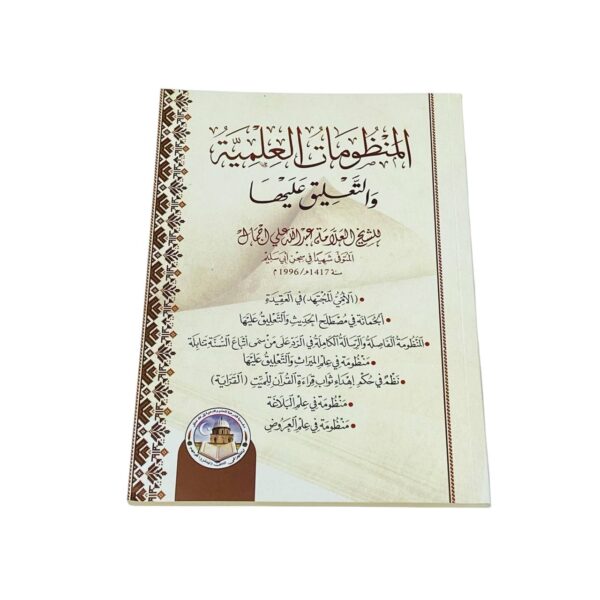 المنظومات العلمية
والتعليق عليها
للشيخ العلامة عبدالله علي أجمال
المتوفى شهيدًا في سجن أبي سليم
سنة 1417هـ/1996م
• (الأمي المجتهد) في العقيدة
• الجمانة في مصطلح الحديث والتعليق عليها
• المنظومة الفاصلة والرسالة الكاملة في الرد على من سمى أتباع السنة نتابلة
• منظومة في علم الميراث والتعليق عليها
• نظم في حكم إهداء ثواب قراءة القرآن للميت (القراية)
• منظومة في علم البلاغة
• منظومة في علم العروض